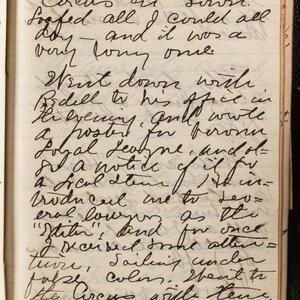 Circus in town.
Loafed all I could all
day – and it was a
very long one.
Went down with
Bedell to his office in
the evening, and wrote
a poster for
Loyal League, and al-
so a notice of it for
a local item. He in-
troduced me to sev-
eral lawyers as the
and for once
I received some atten-
tion, sailing under
false colors. Went to
the Circus with them